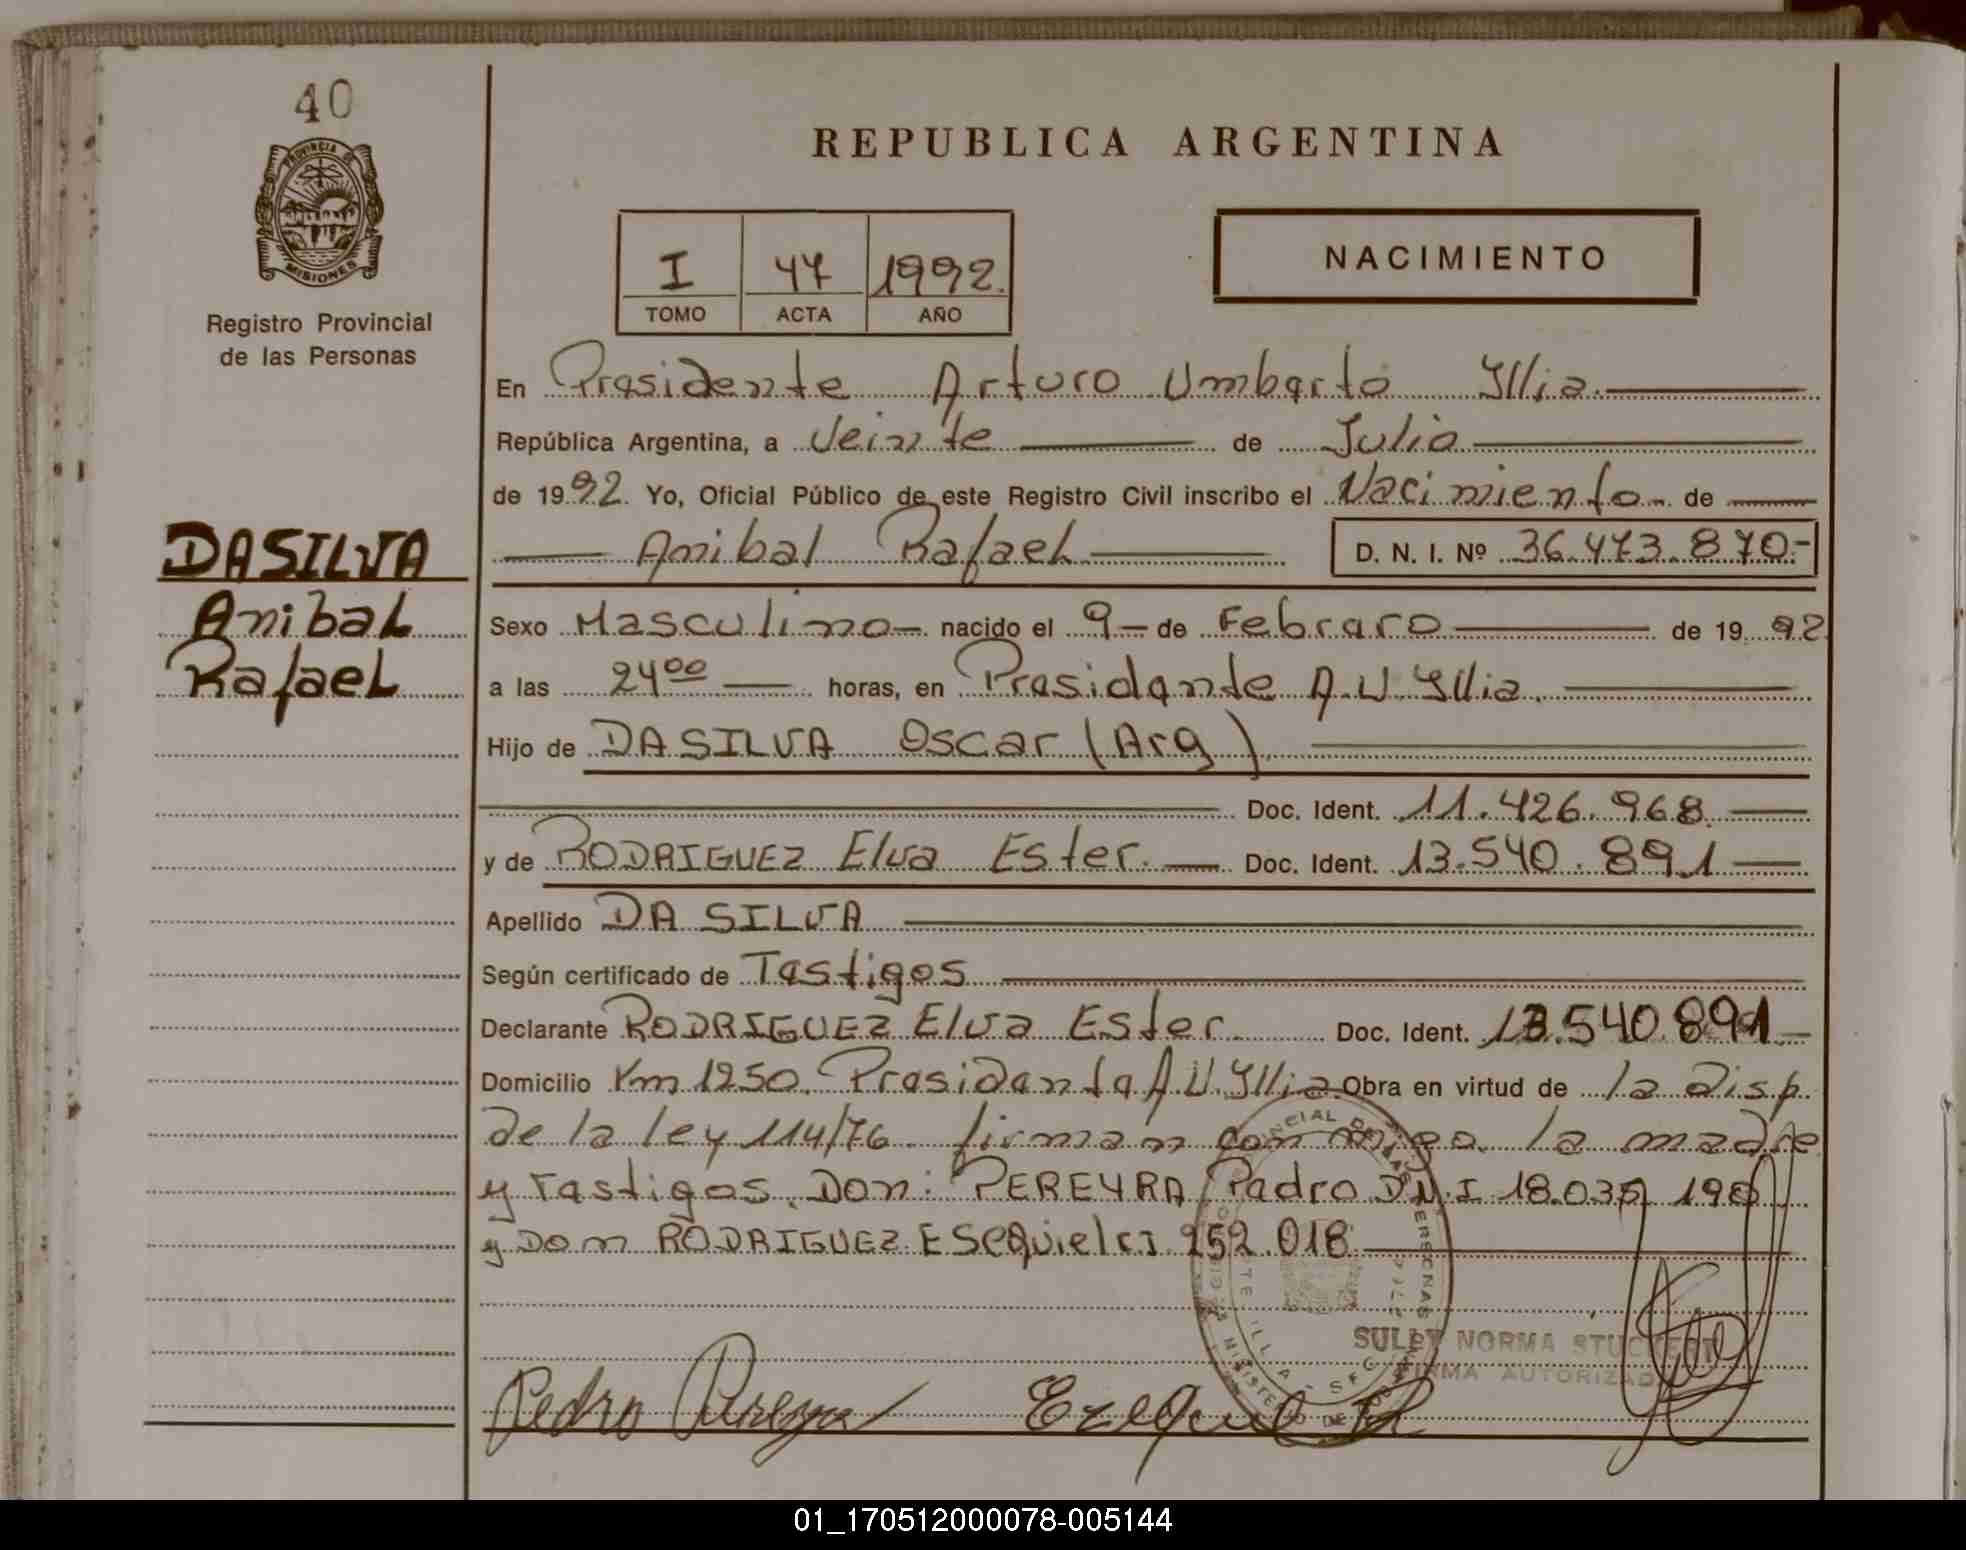 40
PROVINCIA DE
MISIONES
Registro Provincial
de las Personas
DASILVA
Anibal
Rafael
REPUBLICA ARGENTINA
I 47 1992.
TOMO ACTA AÑO
NACIMIENTO
En Presidente Arturo Umberto Yllia.
República Argentina, a Veinte de Julio
de 1992. Yo, Oficial Público de este Registro Civil inscribo el Nacimiento de
Anibal Rafael D. N. I. Nº 36.473.870.-
Sexo Masculino nacido el 9 de Febrero de 1992
a las 24⁰⁰ horas, en Presidente A U Yllia.
Hijo de DASILVA Oscar (Arg)
Doc. Ident. 11.426.968.
y de RODRIGUEZ Elva Ester. Doc. Ident. 13.540.891
Apellido DA SILVA
Según certificado de Testigos
Declarante RODRIGUEZ Elva Ester Doc. Ident. 13.540.891
Domicilio Km 1250. Presidente A.U.Yllia Obra en virtud de la disp.
de la ley 114/76. firman conmigo la madre
y Testigos. Don: PEREYRA Pedro D.N.I 18.035 190
y Don RODRIGUEZ ESeQuiel CI 252.018
SULLY NORMA STUCKERT
FIRMA AUTORIZADA
Pedro Pereyra Ezequiel R
01_170512000078-005144